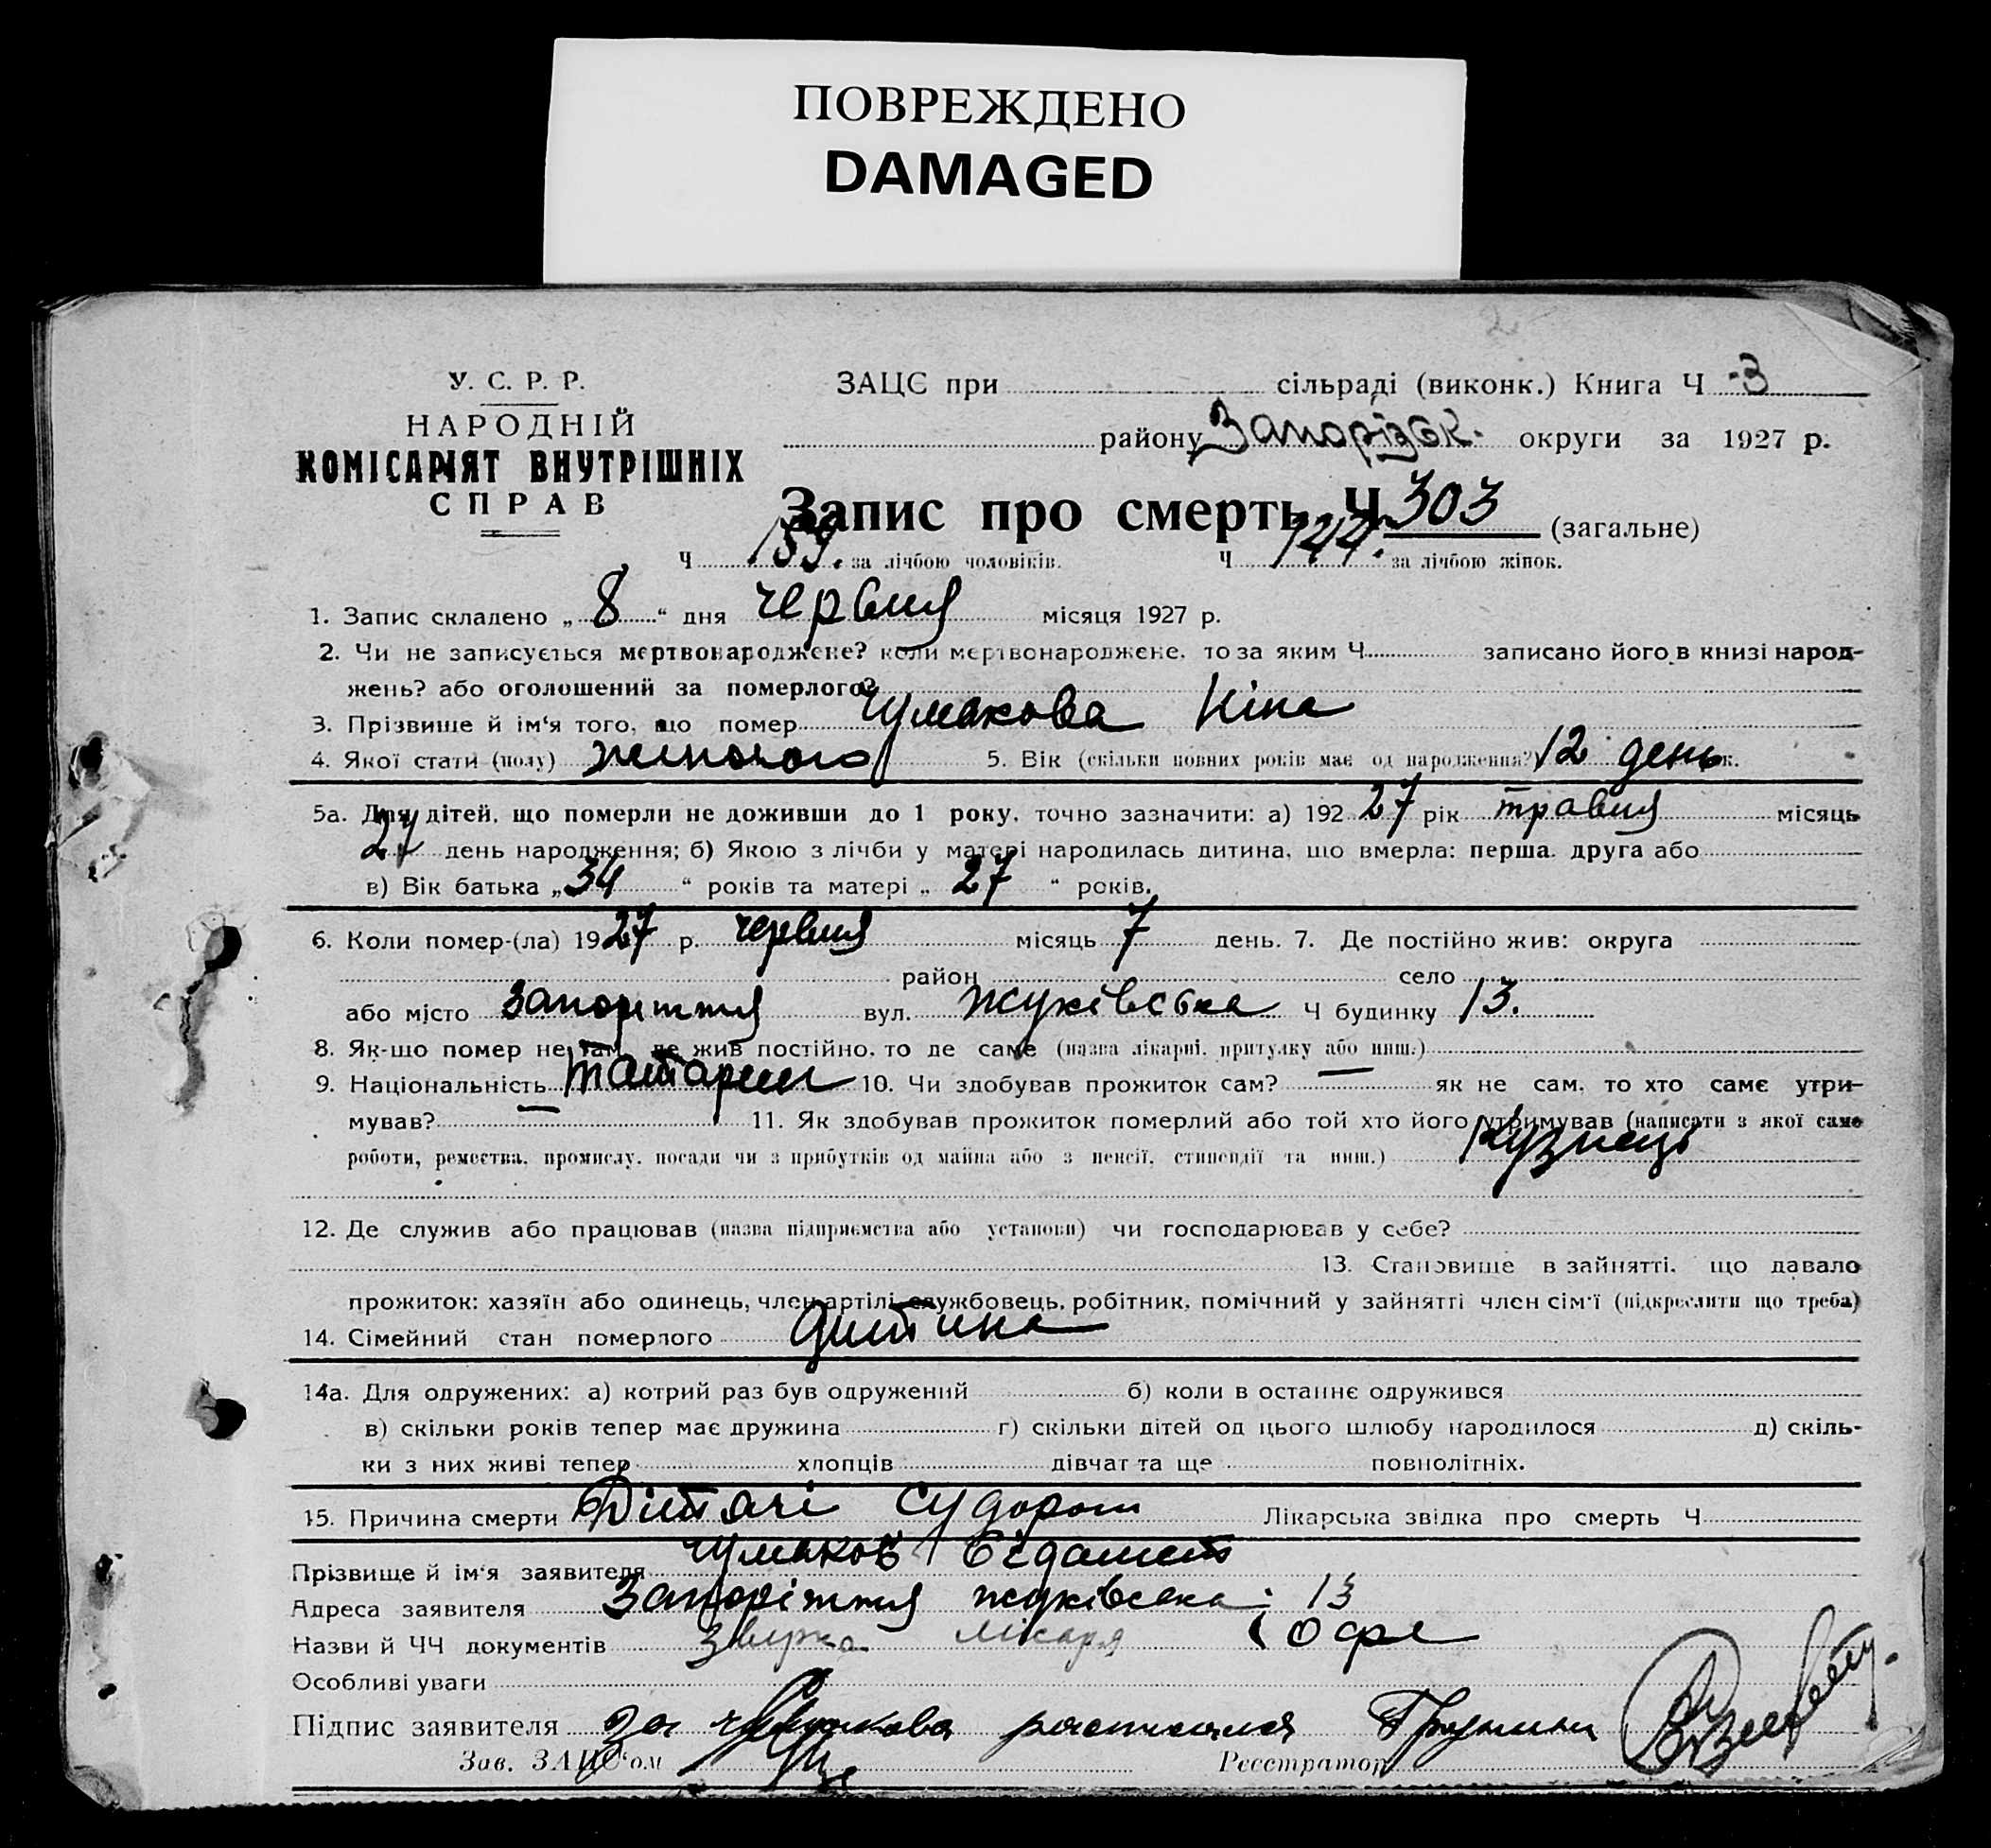 ПОВРЕЖДЕНО
DAMAGED
У. С. Р. Р.
НАРОДНІЙ
КОМІСАРІЯТ ВНУТРІШНІХ
СПРАВ
ЗАЦС при сільраді (виконк.) Книга Ч 3
району Запорізьк. округи за 1927 р.
Запис про смерть Ч 303 (загальне)
Ч 159. за лічбою чоловіків. Ч 144. за лічбою жінок.
1. Запис складено „ 8 “ дня червня місяця 1927 р.
2. Чи не записується мертвонароджене? коли мертвонароджене, то за яким Ч записано його в книзі народ-
жень? або оголошений за померлого?
3. Прізвище й ім'я того, що помер Чумакова Ніна
4. Якої стати (полу) жіночого 5. Вік (скільки повних років має од народження?) 12 день к.
5а. Для дітей, що померли не доживши до 1 року, точно зазначити: а) 192 27 рік травня місяць
27 день народження; б) Якою з лічби у матері народилась дитина, що вмерла: перша, друга або
в) Вік батька „ 34 “ років та матері „ 27 “ років.
6. Коли помер-(ла) 19 27 р. червня місяць 7 день. 7. Де постійно жив: округа
район село
або місто Запоріжжя вул. Жуківська Ч будинку 13.
8. Як-що помер не там, де жив постійно, то де саме (назва лікарні, притулку або инш.)
9. Національність татарин 10. Чи здобував прожиток сам? — як не сам, то хто саме утри-
мував? — 11. Як здобував прожиток померлий або той хто його утримував (написати з якої саме
роботи, ремества, промислу, посади чи з прибутків од майна або з пенсії, стипендії та инш.) Кузнець
12. Де служив або працював (назва підприємства або установи) чи господарював у себе?
13. Становище в зайнятті, що давало
прожиток: хазяїн або одинець, член артілі, службовець, робітник, помічний у зайнятті член сім'ї (підкреслити що треба)
14. Сімейний стан померлого Дитина
14а. Для одружених: а) котрий раз був одружений б) коли в останнє одружився
в) скільки років тепер має дружина г) скільки дітей од цього шлюбу народилося д) скіль-
ки з них живі тепер хлопців дівчат та ще повнолітніх.
15. Причина смерти Дитячі судороги Лікарська звідка про смерть Ч
Прізвище й ім'я заявителя Чумаков
Адреса заявителя Запоріжжя Жуківська 13
Назви й ЧЧ документів лікаря
Особливі уваги
Підпис заявителя За Чумакова
Зав. ЗАЦС'ом Реєстратор